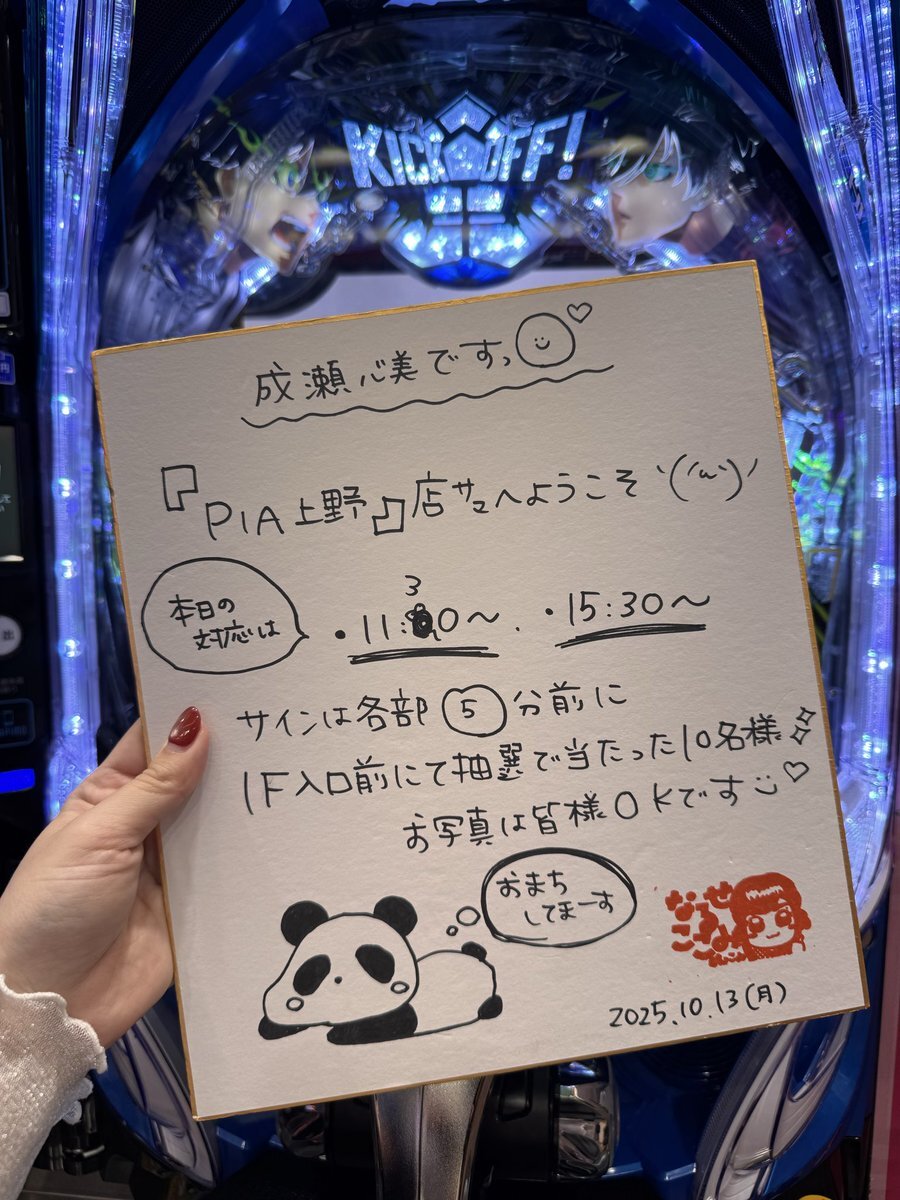 KICK OFF!
成瀬心美ですっ
『PIA上野』店サマへようこそ ヽ('ω')ノ
本日の
対応は
・11:30〜 ・15:30〜
サインは各部⑤分前に
1F入口前にて抽選で当たった10名様
お写真は皆様OKです
おまち
してまーす
なるせ
ここみ
2025.10.13(月)